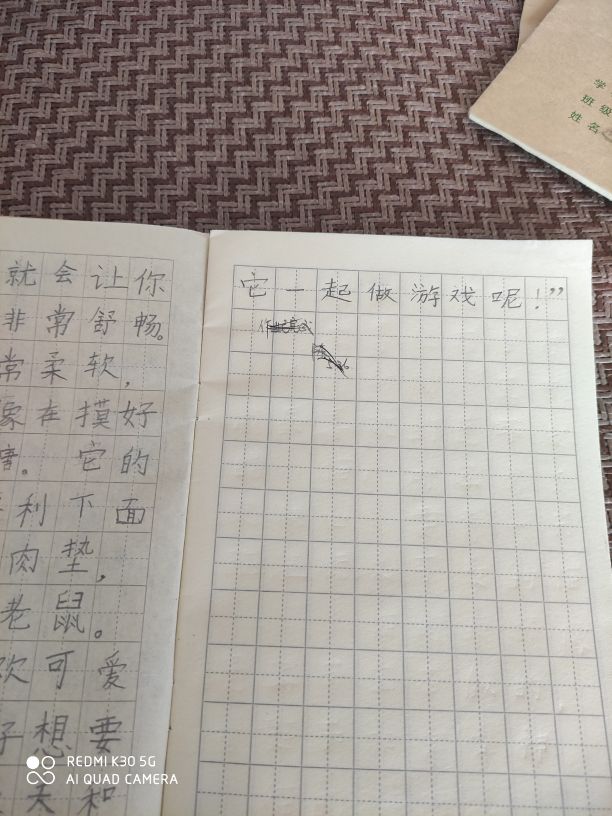 就会让你
非常舒畅。
常柔软，
象在摸好
它的
利下面
肉垫，
老鼠。
欢可爱
想要
和
它一起做游戏呢！”
学
班级
姓名
REDMI K30 5G
AI QUAD CAMERA